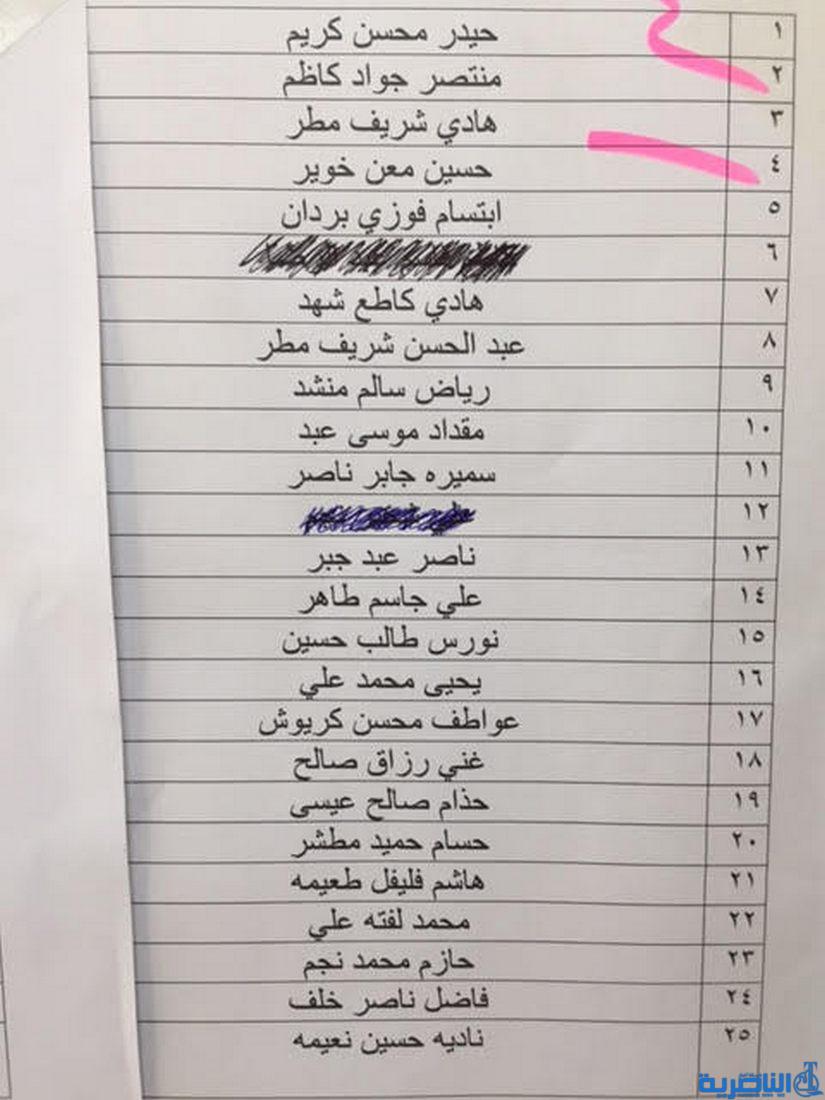 ١ حيدر محسن كريم
٢ منتصر جواد كاظم
٣ هادي شريف مطر
٤ حسين معن خوير
٥ ابتسام فوزي بردان
٦
٧ هادي كاطع شهد
٨ عبد الحسن شريف مطر
٩ رياض سالم منشد
١٠ مقداد موسى عبد
١١ سميره جابر ناصر
١٢
١٣ ناصر عبد جبر
١٤ علي جاسم طاهر
١٥ نورس طالب حسين
١٦ يحيى محمد علي
١٧ عواطف محسن كريوش
١٨ غني رزاق صالح
١٩ حذام صالح عيسى
٢٠ حسام حميد مطشر
٢١ هاشم فليفل طعيمه
٢٢ محمد لفته علي
٢٣ حازم محمد نجم
٢٤ فاضل ناصر خلف
٢٥ ناديه حسين نعيمه
الناصرية